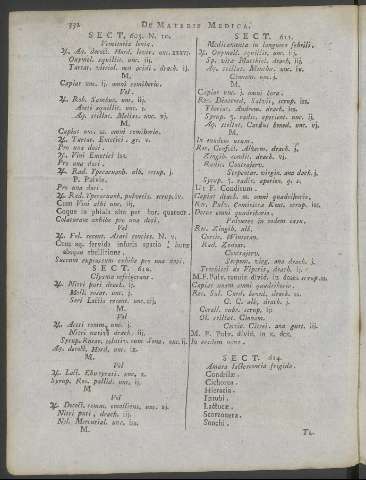 332 DE MATERIE MEDICA.
SECT. 605. N. 10.
Vomitoria lenia.
℞. Aq. decoct. Hord. lever. unc. xxxvj.
Oxymel. squillit. unc. iij.
Tartar. vitriol. non acidi. drach. ij.
M.
Capiat unc. ij. omni semihorio.
Vel
℞. Rob. Sambuc. unc. iij.
Aceti squillit. unc. 1.
Aq. stillat. Meliss. unc. vj.
M.
Capiat unc. ii. omni semihorio.
℞. Tartar. Emetici. gr. v.
Pro una dosi.
℞. Vini Emetici ʒvi.
Pro una dosi.
℞. Rad. Ypecacuanh. alb. scrup. j.
F. Pulvis.
Pro una dosi.
℞. Rad. Ypecacuanh. pulveris. scrup. iv.
Cum Vini albi unc. iij.
Coque in phiala alta per hor. quadrant.
Colaturam exhibe pro una dosi.
Vel
℞. Fol. recent. Asari concisi. N. v.
Cum aq. fervida infusis spatio ½ horæ
absque ebullitione,
Succum expressum exhibe pro una dosi.
SECT. 610.
Clysma refrigerans.
℞. Nitri puri drach. ij.
Mell. rosar. unc. j.
Seri Lactis recent. unc. iij.
M.
Vel
℞. Aceti comm. unc. j.
Nitri nativi drach. iij.
Syrup. Rosar. solutiv. cum Senn. unc. ij.
Aq. decoct. Hord. unc. ix.
M.
Vel
℞. Lact. Ebutyrati unc. x.
Syrup. Ros. pallid. unc. ij.
M.
Vel
℞. Decoct. comm. emolliens. unc. ix.
Nitri puri, drach. iij.
Mel. Mercurial. unc. iii.
M.
SECT. 611.
Medicamenta in languore febrili.
℞. Oxymell. squillit. unc. iij.
Sp. vitæ Matthiol. drach. iij.
Aq. stillat. Menthæ unc. ix.
Cinnam. unc. j.
M.
Capiat unc. j. omni hora.
Rec. Diascord. Sylvii, scrup. iv.
Theriac. Androm. drach. iv.
Syrup. 5. radic. aperient. unc. ij.
Aq. stillat. Cardui bened. unc. vj.
M.
In eundem usum.
Rec. Confect. Alkerm. drach. j.
Zingib. condit. drach. vj.
Radic. Contrajerv.
Serpentar. virgin. ana drach. j.
Syrup. 5. radic. aperien. q. s.
Ut F. Conditum.
Capiat drach. ij. omni quadrihorio.
Rec. Pulv. Comitissæ Kent. scrup. iv.
Detur omni quadrihorio.
Pulveres in eodem casu.
Rec. Zingib. alb.
Cortic. Winteran.
Rad. Zedoar.
Contrajerv.
Serpent. virg. ana drach. j.
M.F.Pulv. tenuis divid. in doses scrup. iii.
Capiat unam omni quadrihorio.
Rec. Sal. Card. bened. drach. ij.
C. C. alb. drach. j.
Corall. rubr. scrup. ij.
Ol. stillat. Cinnam.
M. F. Pulv. divid. in x. dos.
In eundem usum.
SECT. 614.
Amara lactescentia frigida.
Condrillæ.
Cichorea.
Hieracia.
Intubi.
Lactucæ.
Scorzonera.
Sonchi.